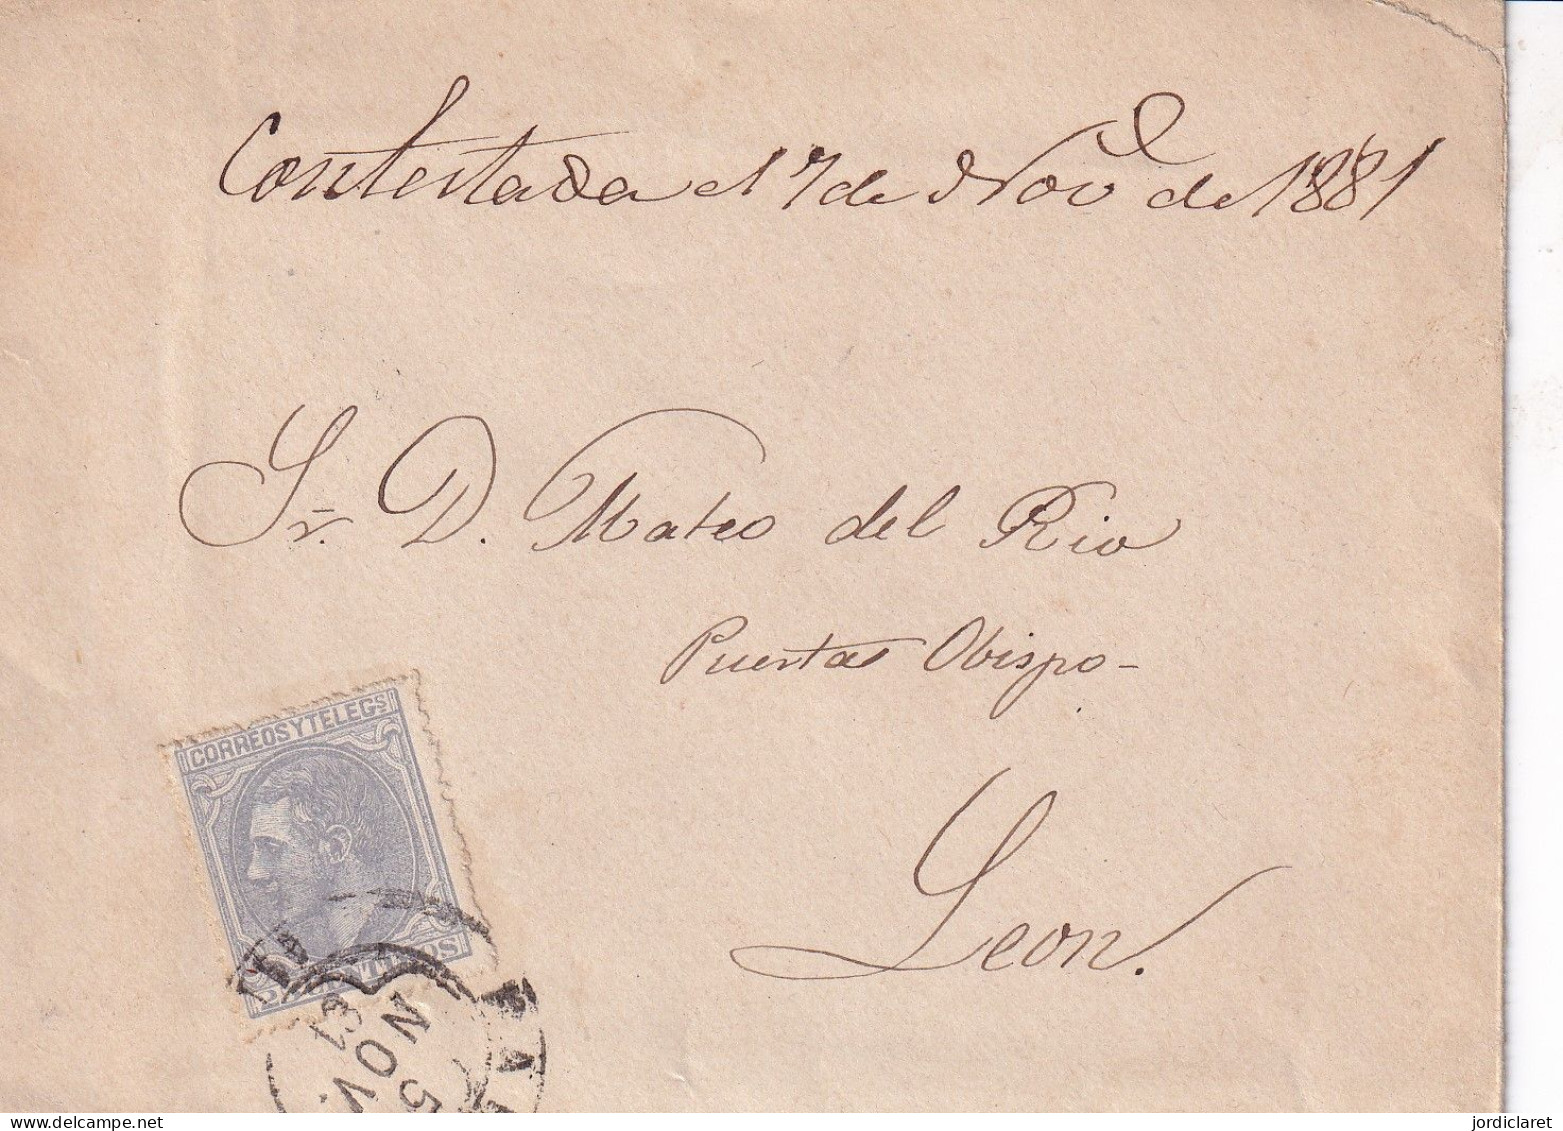 Contestada el 17 de Nov.e de 1881
Sr. D. Mateo del Rio
Puerta Obispo-
Leon.
CORREOS Y TELEGS
25 CENTIMOS
NOV.
jordiclaret